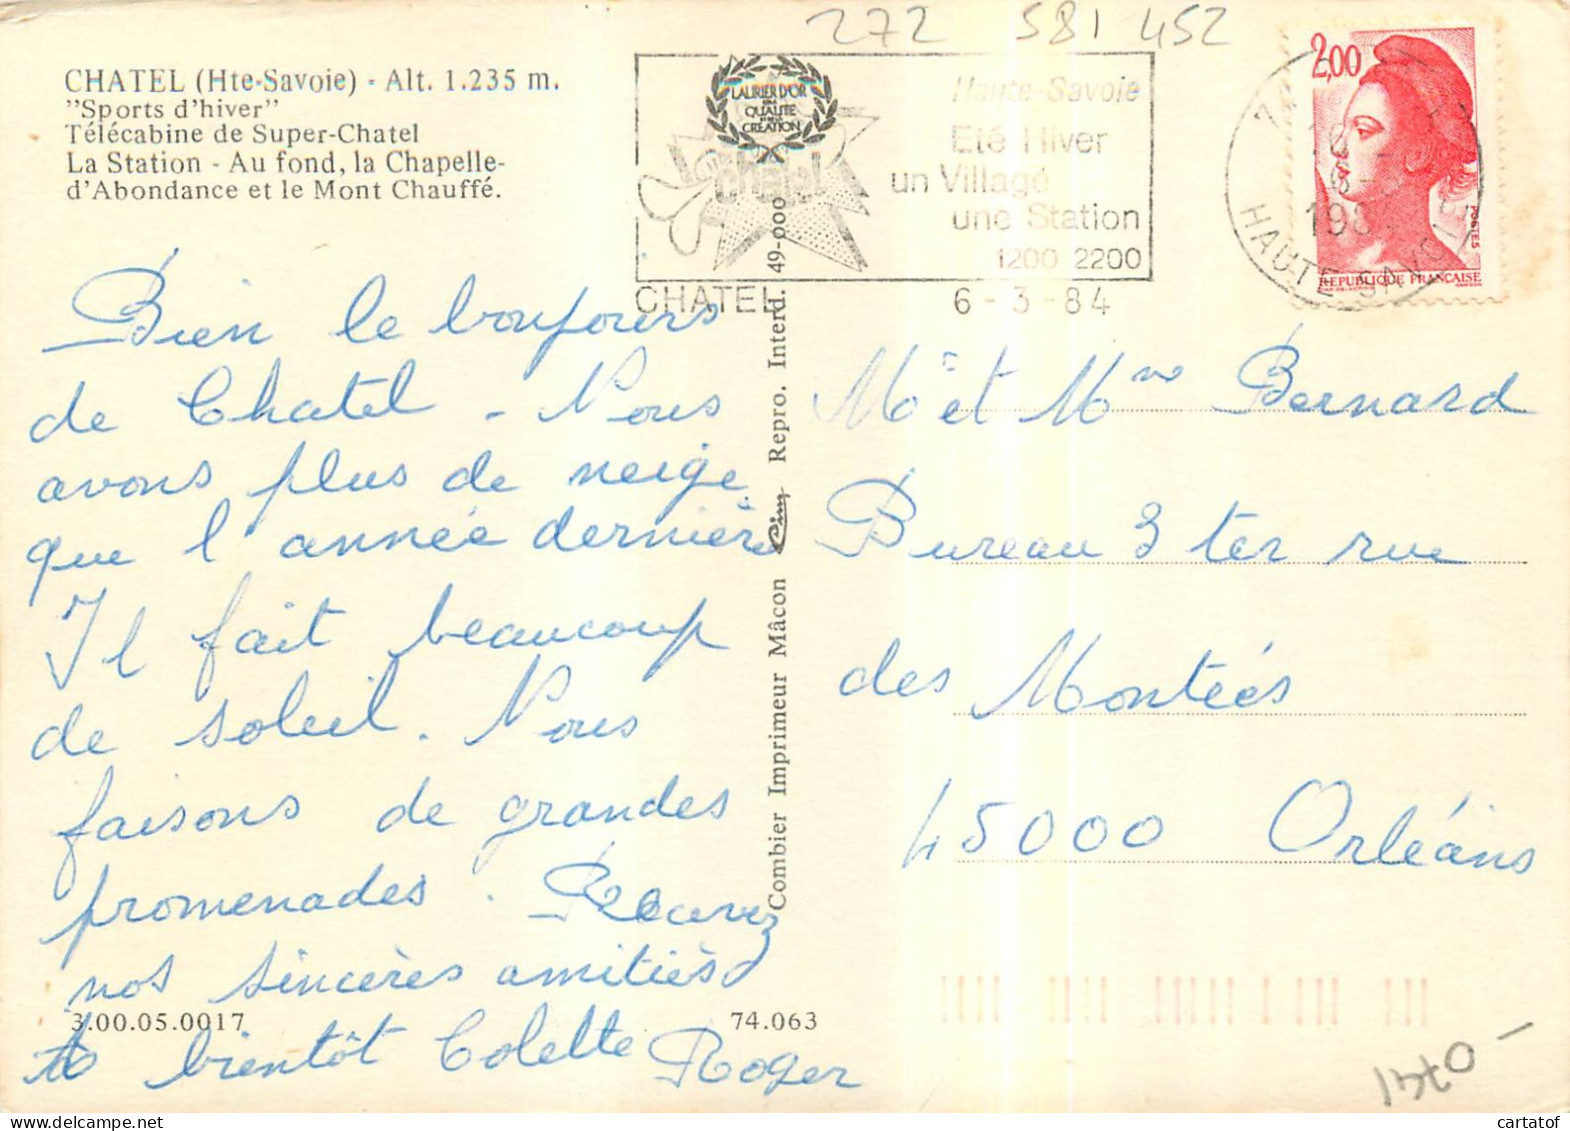 272 581 452
CHATEL (Hte-Savoie) - Alt. 1.235 m.
"Sports d'hiver"
Télécabine de Super-Chatel
La Station - Au fond, la Chapelle-
d'Abondance et le Mont Chauffé.
LAURIER D'OR
QUALITÉ
CRÉATION
chatel
Haute-Savoie
Eté Hiver
un Village
une Station
1200 2200
CHATEL 6-3-84
2,00
POSTES
REPUBLIQUE FRANÇAISE
HAUTE-SAVOIE
198
Bien le boujours
de Chatel - Nous
avons plus de neige
que l'année dernière
Il fait beaucoup
de soleil. Nous
faisons de grandes
promenades. Recevez
nos sincères amitiés
A bientôt Colette Roger
Combier Imprimeur Mâcon Cim Repro. Interd. 49-000
M et Mme Bernard
Bureau 3 ter rue
des Montées
45000 Orléans
3.00.05.0017
74.063
cartatof